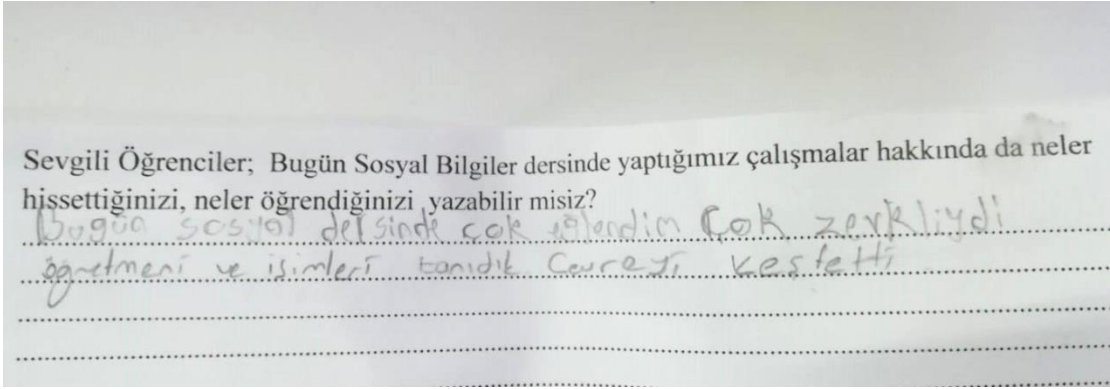 Sevgili Öğrenciler; Bugün Sosyal Bilgiler dersinde yaptığımız çalışmalar hakkında da neler
hissettiğinizi, neler öğrendiğinizi yazabilir misiz?
Bugün sosyal dersinde çok eğlendim Çok zevkliydi
öğretmeni ve isimleri tanıdık Çevreyi keşfetti